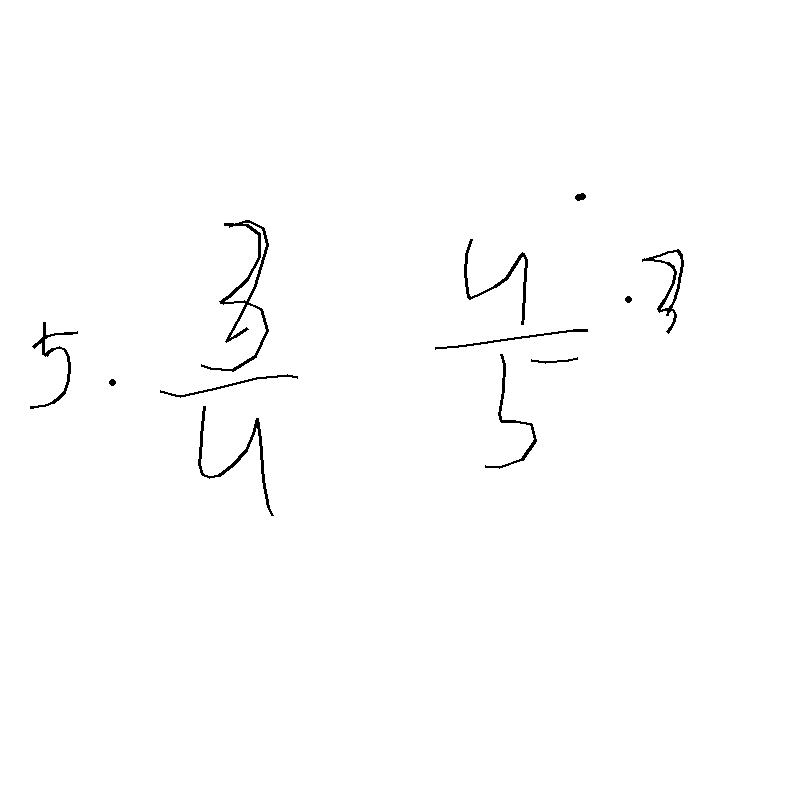 5 · 3/4    4/5 · 3